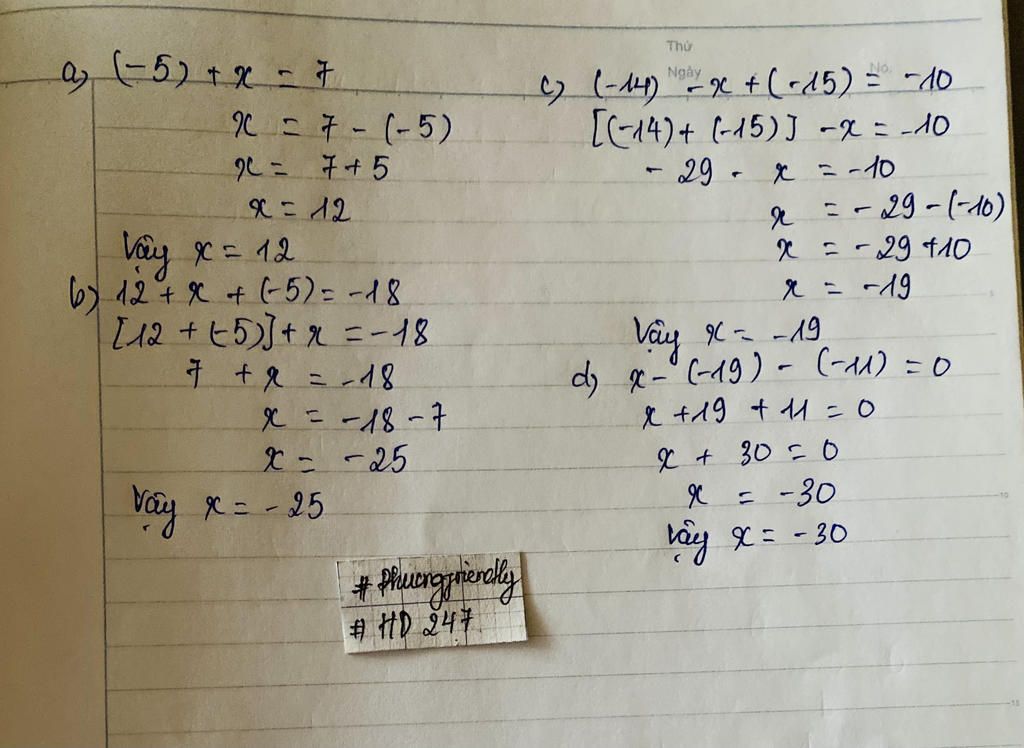 a) (-5) + x = 7
x = 7 - (-5)
x = 7 + 5
x = 12
Vậy x = 12
b) 12 + x + (-5) = -18
[12 + (-5)] + x = -18
7 + x = -18
x = -18 - 7
x = -25
Vậy x = -25
Thứ
Ngày
No.
c) (-14) - x + (-15) = -10
[(-14) + (-15)] - x = -10
- 29 - x = -10
x = - 29 - (-10)
x = - 29 + 10
x = -19
Vậy x = -19
d) x - (-19) - (-11) = 0
x + 19 + 11 = 0
x + 30 = 0
x = -30
Vậy x = -30
5
10
15
# Phuongfriendly
# HD 247